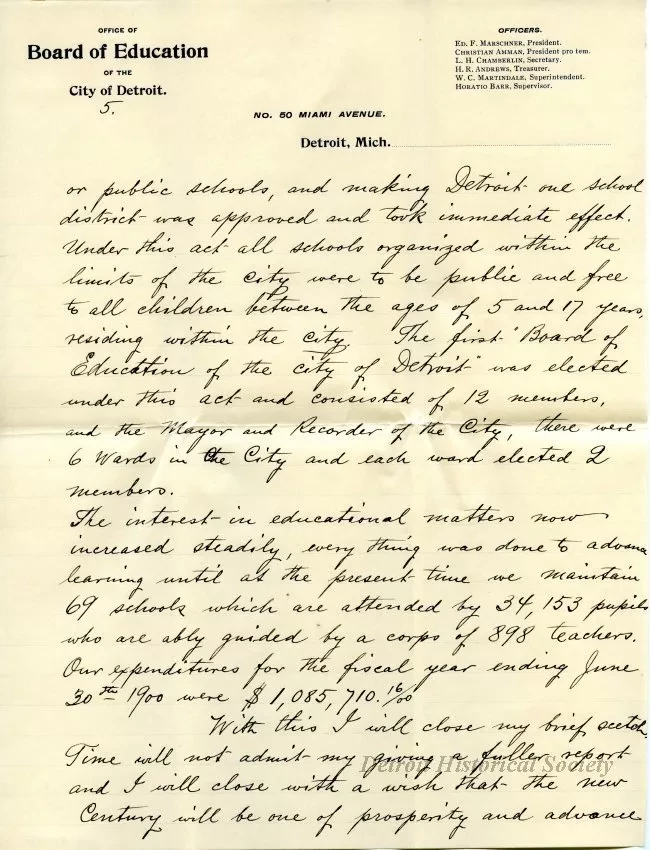 OFFICE OF
Board of Education
OF THE
City of Detroit.
5.
OFFICERS.
ED. F. MARSCHNER, President.
CHRISTIAN AMMAN, President pro tem.
L. H. CHAMBERLIN, Secretary.
H. R. ANDREWS, Treasurer.
W. C. MARTINDALE, Superintendent.
HORATIO BARR, Supervisor.
NO. 50 MIAMI AVENUE.
Detroit, Mich.
or public schools, and making Detroit one school
district was approved and took immediate effect.
Under this act all schools organized within the
limits of the city were to be public and free
to all children between the ages of 5 and 17 years,
residing within the city. The first "Board of
Education of the city of Detroit" was elected
under this act and consisted of 12 members,
and the Mayor and Recorder of the City, there were
6 Wards in the City and each ward elected 2
members.
The interest in educational matters now
increased steadily, every thing was done to advance
learning until at the present time we maintain
69 schools which are attended by 34,153 pupils
who are ably guided by a corps of 898 teachers.
Our expenditures for the fiscal year ending June
30th 1900 were $1,085,710.16/00
With this I will close my brief scetch.
Time will not admit my giving a fuller report
and I will close with a wish that the new
Century will be one of prosperity and advance
Detroit Historical Society